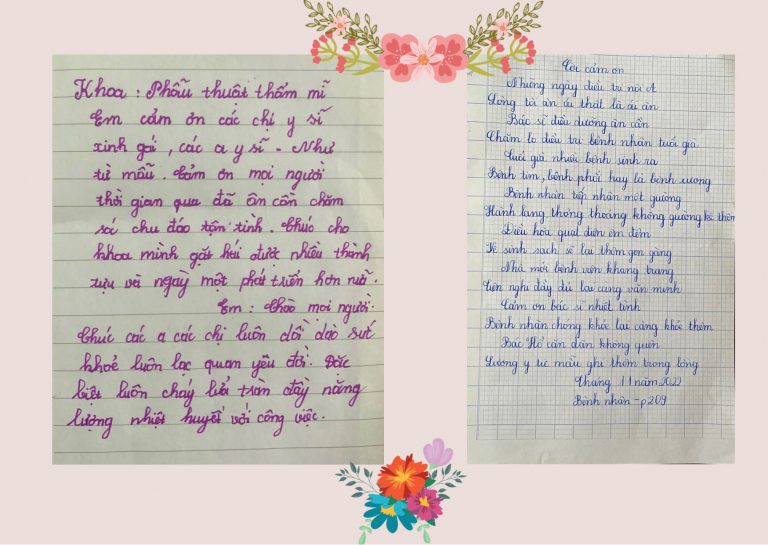 Khoa : Phẫu thuật thẩm mĩ
Em cảm ơn các chị y sĩ
xinh gái , các a y sĩ - Như
từ mẫu. Cảm ơn mọi người
thời gian qua đã ân cần chăm
sóc chu đáo tận tình. Chúc cho
khoa mình gặt hái được nhiều thành
tựu và ngày một phát triển hơn nữa.
Em : Chào mọi người.
Chúc các a các chị luôn dồi dào sức
khoẻ luôn lạc quan yêu đời. Đặc
biệt luôn cháy lửa tràn đầy năng
lượng nhiệt huyết với công việc.
Lời cảm ơn
Những ngày điều trị nội A
Lòng tôi ân ái thật là ái ân
Bác sĩ điều dưỡng ân cần
Chăm lo điều trị bệnh nhân tuổi già
Tuổi già nhiều bệnh sinh ra
Bệnh tim, bệnh phổi hay là bệnh xương
Bệnh nhân tiếp nhận một gường
Hành lang thông thoáng không gường kê thêm
Điều hòa quạt điện êm đềm
Vệ sinh sạch sẽ lại thêm gọn gàng
Nhà mới bệnh viện khang trang
Tiện nghi đầy đủ lại càng văn minh
Cảm ơn bác sĩ nhiệt tình
Bệnh nhân chóng khỏe lại càng khỏe thêm
Bác Hồ căn dặn không quên
Lương y từ mẫu ghi thêm trong lòng
Tháng 11 năm 2022
Bệnh nhân - p 209